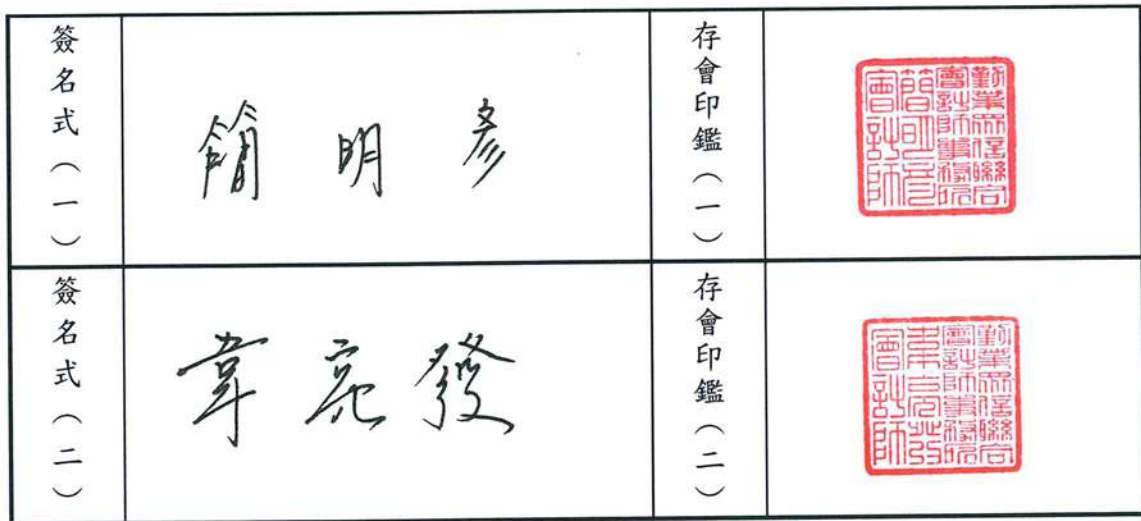 簽名式(一)
簡明彥
存會印鑑(一)
勤業眾信聯合
會計師事務所
簡明彥
會計師
簽名式(二)
韋亮發
存會印鑑(二)
勤業眾信聯合
會計師事務所
韋亮發
會計師